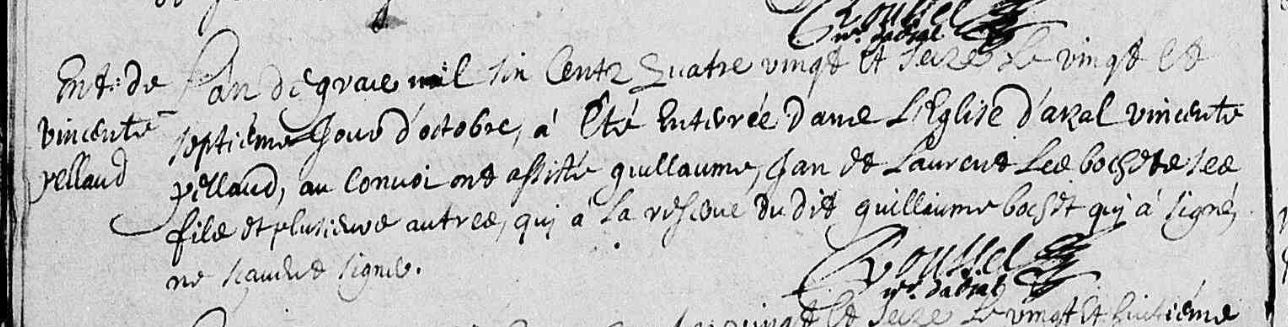 Roussel
Ent: de
vincente
pellaud
L'an de grace mil six centz quatre vingt et seize Le vingt et
septième Jour d'octobre, a été enterrée dans L'Eglise d'arzal vincente
pellaud, au convoi ont assisté guillaume, Jan et Laurent Les bochets ses
fils et plusieurs autres, qui à la reserve du dit guillaume bochet qui a signé,
ne scavent signer.
Roussel
vingt et seize Le vingt et huitième